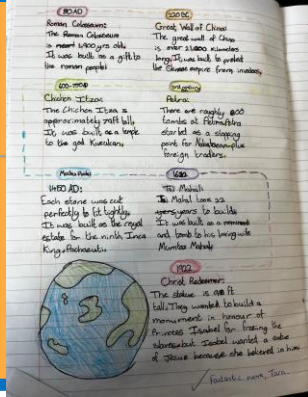 80 AD
Roman Colosseum:
The Roman Colosseum
is 1,900 yrs old.
It was built as a gift to
the roman people!
220 BC
Great Wall of China:
The great wall of China
is over 21,000 kilometers
long. It was built to protect
the Chinese empire from invaders.
600-
Chichen Itza:
The Chichen Itza is
approximately 79ft tall,
It was built as a temple
to the god Kukulkan.
Petra:
There are roughly 800
tombs at Petra. Petra
started as a stopping
point for Nabataean plus
foreign traders.
Machu Picchu
1450 AD:
Each stone was cut
perfectly to fit tightly.
It was built as the royal
estate for the ninth Inca
King, Pachacuti.
1632
Taj Mahal:
Mahal took 22
years to build.
It was built as a
and tomb to his loving wife
Mumtaz Mahal.
1922
Christ Redeemer:
The statue is 98 ft
tall. They wanted to build a
monument in honour of
Princess Isabel for freeing the
slaves but Isabel wanted a statue
of Jesus because she believed in him
Fantastic work, Tara.